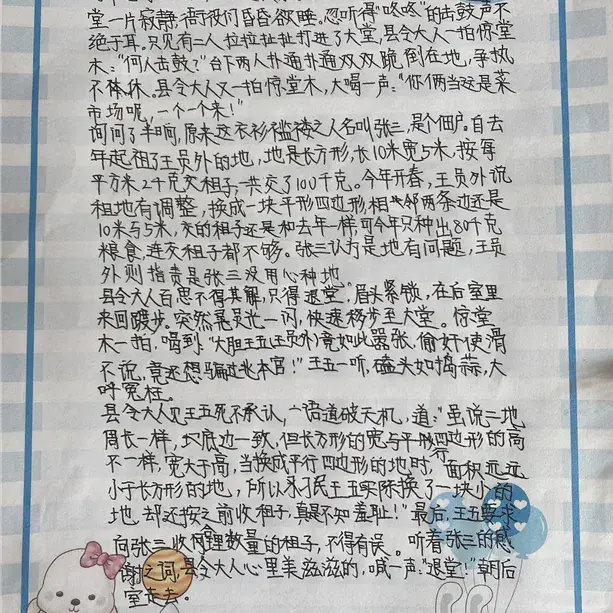 堂一片寂静,衙役们昏昏欲睡。忽听得"咚咚"的击鼓声不
绝于耳。只见有二人拉拉扯扯打进了大堂,县令大人一拍惊堂
木:"何人击鼓?"台下两人扑通扑通双双跪倒在地,争执
不休。县令大人又一拍惊堂木,大喝一声:"你俩当这是菜
市场呢,一个一个来!"
询问了半晌,原来这衣衫褴褛之人名叫张三,是个佃户。自去
年起租了王员外的地,地是长方形,长10米宽5米,按每
平方米2千克交租子,共交了100千克。今年开春,王员外说
租地有调整,换成一块平行四边形,相邻两条边还是
10米与5米,交的租子还是和去年一样,可今年只种出80千克
粮食,连交租子都不够。张三认为是地有问题,王员
外则指责是张三没用心种地
县令大人百思不得其解,只得退堂。眉头紧锁,在后室里
来回踱步。突然灵光一闪,快速移步至大堂。惊堂
木一拍,喝到"大胆王五(王员外)竟如此嚣张,偷奸使滑
不说,竟还想骗过本官!"王五一听,磕头如捣蒜,大
呼冤枉。
县令大人见王五死不承认,一语道破天机,道:"虽说二地
周长一样,底边一致,但长方形的宽与平行四边形的高
不一样,宽大于高,当换成平行四边形的地时,面积远远
小于长方形的地,所以刁民王五实际换了一块小的
地,却还按之前收租子,真是不知羞耻!"最后,王五要求
向张三收合理数量的租子,不得有误。听着张三的感
谢之词,县令大人心里美滋滋的,喊一声:"退堂!"朝后
室走去。